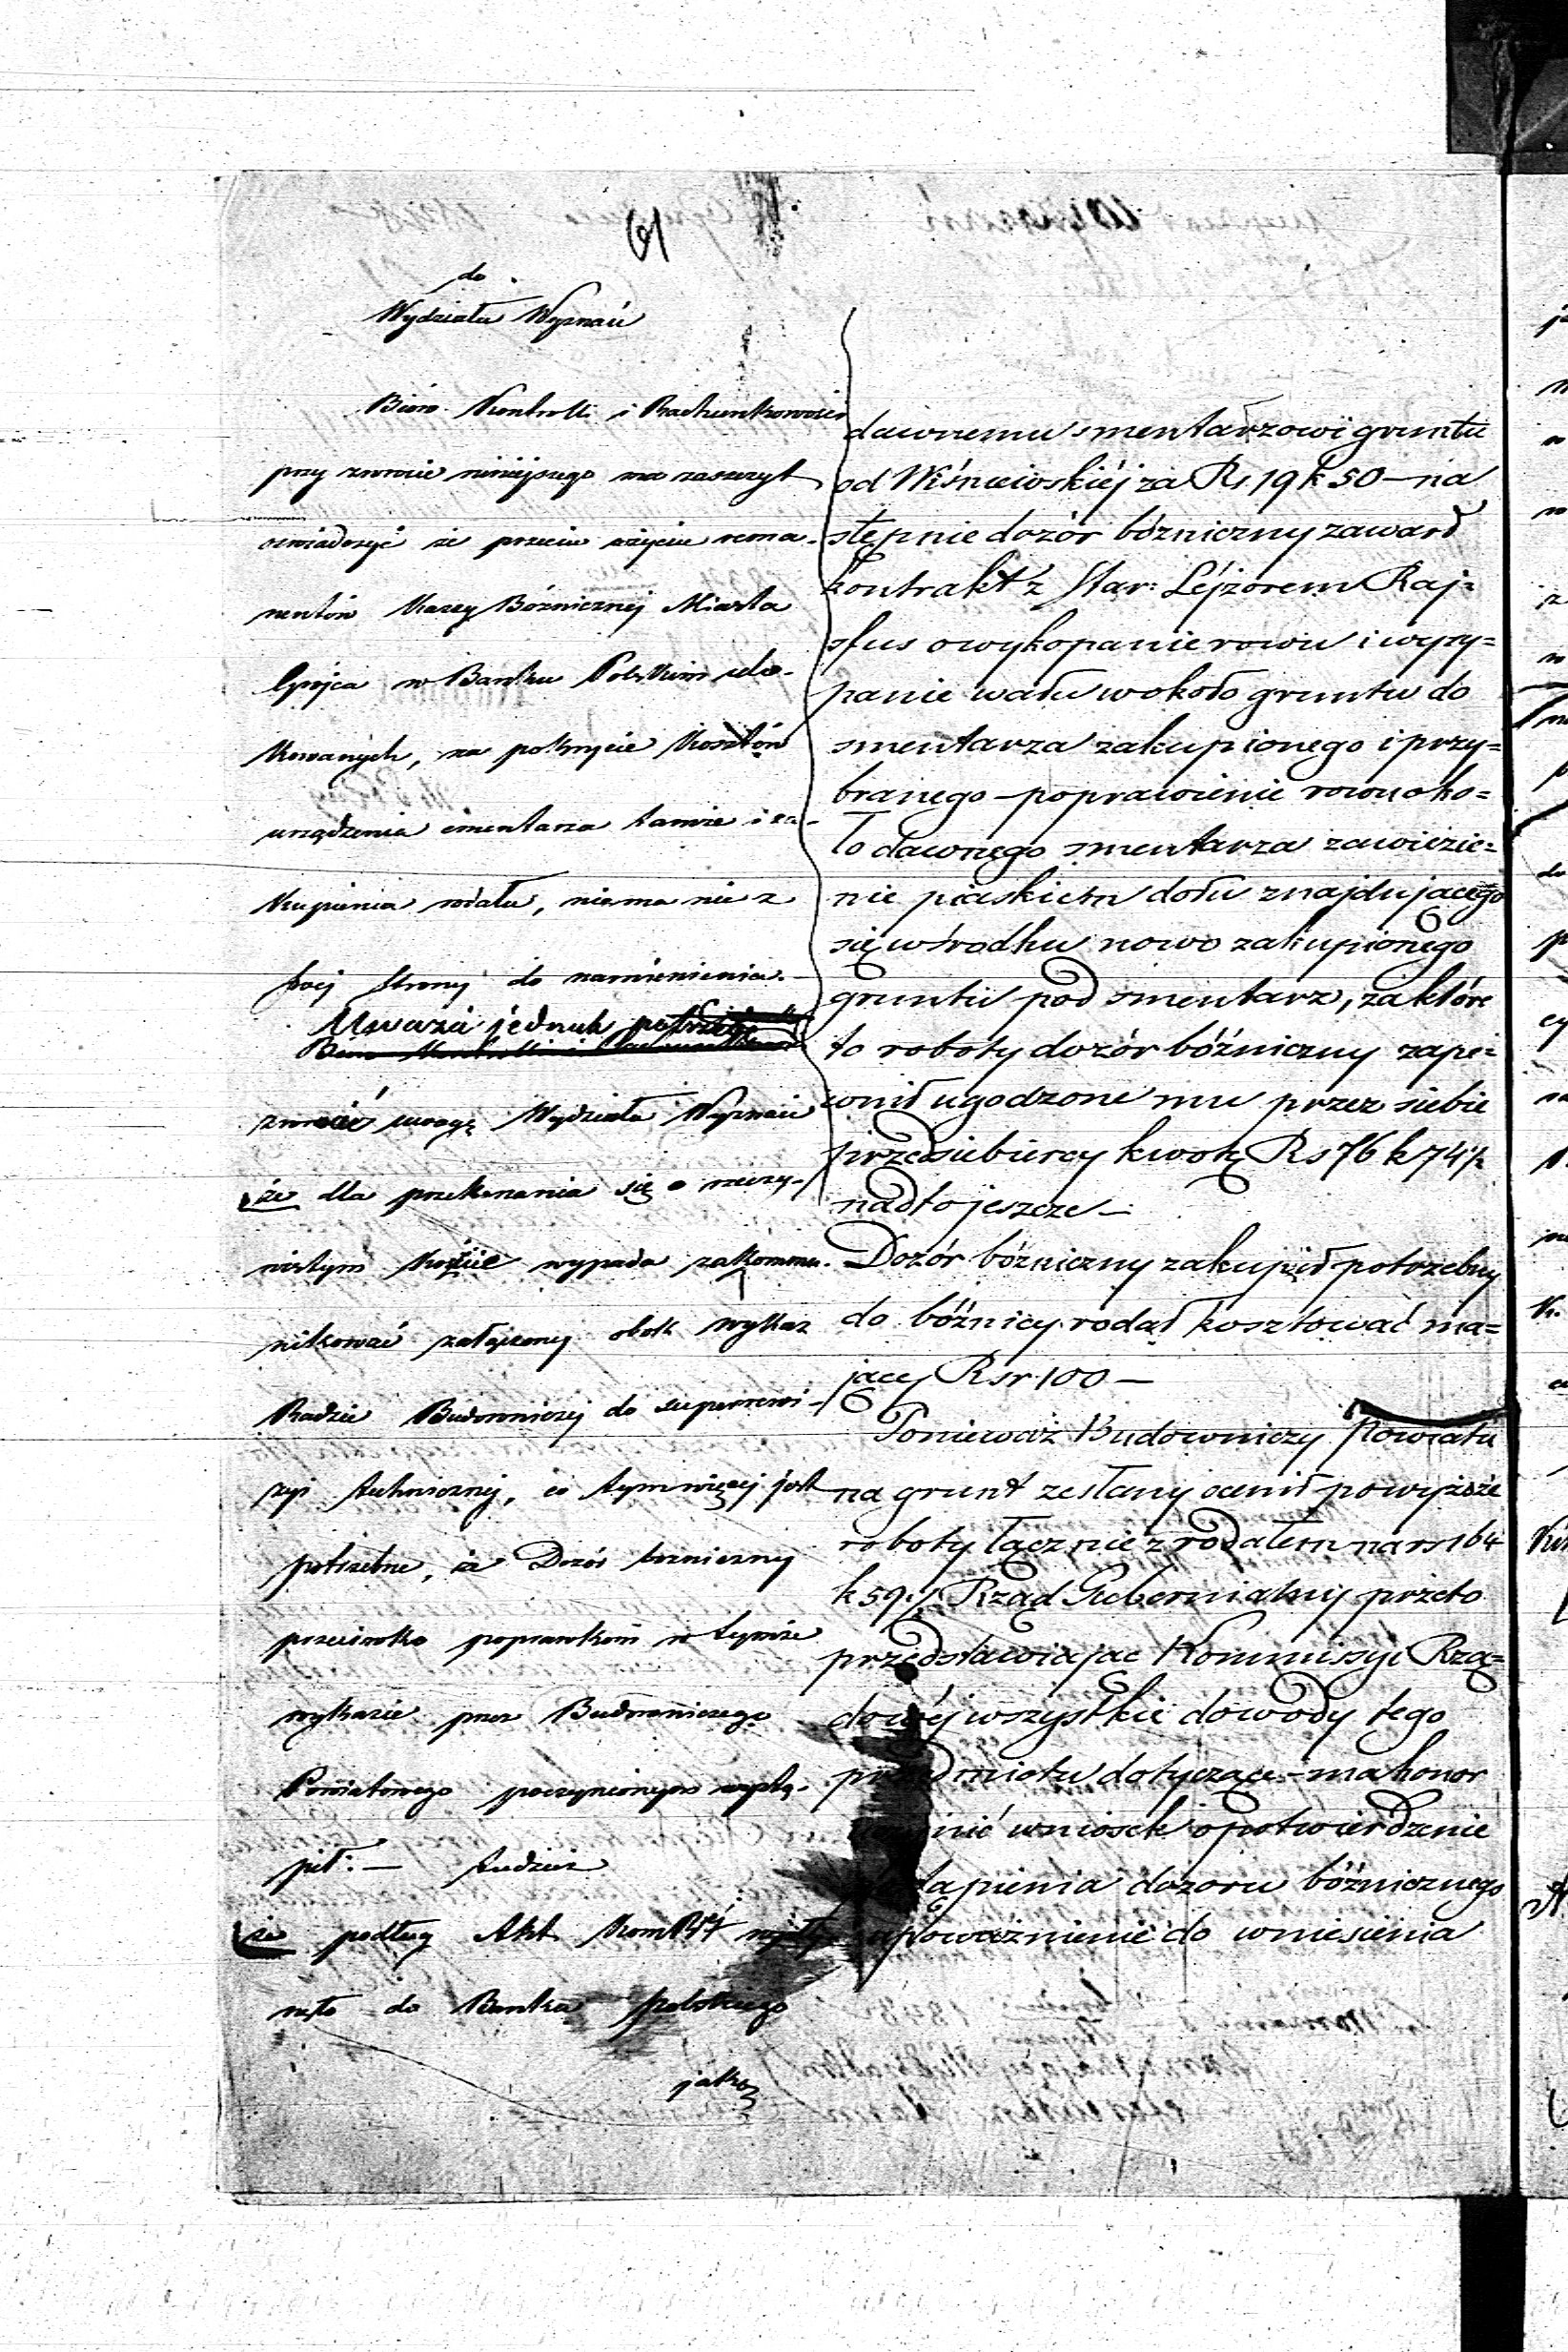 61
do
Wydziału Wyznań
Bióro Kontrolli i Rachunkowości
przy zwrocie niniejszego ma zaszczyt
oświadczyć że przeciw użyciu rema-
nentów Kassy Bóżnicznej Miasta
Grójca w Banku Polskim ulo-
kowanych, na pokrycie kosztów
urządzenia cmentarza tamże i za-
kupienia rodału, niema nic z
swej strony do namienienia.-
Uważa jednak
zwrócić uwagę Wydziału Wyznań
że dla przekonania się o rzeczy-
wistym koszcie wypada zakommu-
nikować załączony obok wykaz
Radzie Budowniczej do superrewi-
zyi technicznej, co tym więcej jest
potrzebne, że Dozór bożniczny
przeciwko poprawkom w tymże
wykazie przez Budowniczego
Powiatowego poczynionym wystą-
pił.- tudzież
że podług Akt Kom
nęło do Banku polskiego
jako
dawnemu smentarzowi gruntu
od Wiśniewskiéj za Rs 19 k 50 – na
stępnie dozór bóżniczny zawarł
kontrakt z Star: Lejzorem Raj=
sfus o wykopanie rowu i wysy=
panie wału wokoło gruntu do
smentarza zakupionego i przy=
branego – poprawienie rowu oko=
ło dawnego smentarza zawiezie=
nie piaskiem dołu znajdującego
się wśrodku nowo zakupionego
gruntu pod smentarz, za które
to roboty dozór bóżniczny zape=
wnił ugodzone mu przez siebie
przedsiebiercy kwotę Rs 76 k 74½
nadto jeszcze –
Dozór bóżniczny zakupił potrzebny
do bóżnicy rodał kosztować ma=
jący Rsr 100 –
Ponieważ Budowniczy Powiatu
na grunt zesłany ocenił powyższe
roboty łącznie z rodałem na rs 164
k 59 Rząd Gubernialny przeto
przedstawiając Kommissyi Rzą=
dowéj wszystkie dowody tego
przedmiotu dotyczące – ma honor
wniosek o potwierdzenie
dozoru bóżnicznego
upoważnienie do wniesienia